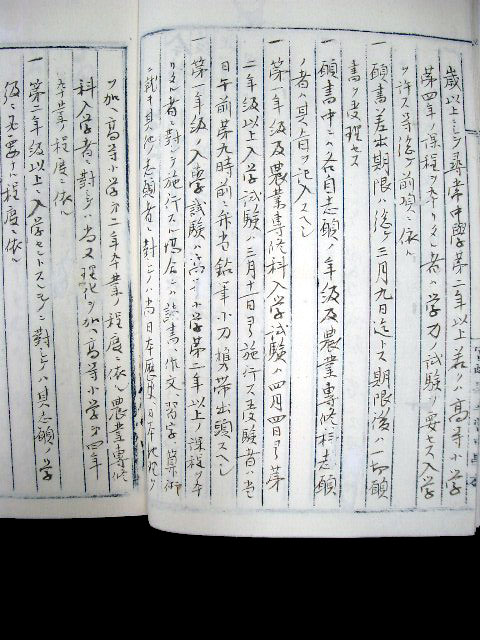 歳以上ニシテ尋常中学第二年以上若クハ高等小学
第四年ノ課程ヲ卒リタル者ハ学力ノ試験ヲ要セス入学
ヲ許ス等総テ前項ニ依ル
一 願書差出期限ハ総テ三月九日迄トス期限後ハ一切願
書ヲ受理セス
一 願書中ニハ各自志願ノ年級及農業専修科志願
ノ者ハ其旨ヲ記入スヘシ
一 第一年級及農業専修科入学試験ハ四月四日ヨリ第
二年級以上入学試験ハ三月十一日ヨリ施行ス受験者ハ当
日午前第九時前ニ弁当鉛筆小刀携帯出頭スヘシ
一 第一年級ノ入学試験ハ高等小学第二年以上ノ課程ヲ卒
リタル者ニ対シ施行スル場合ニハ読書作文習字算術
ニ就キ其他ノ志願者ニ対シテハ尚日本歴史日本地理ヲ
ヲ加ヘ高等小学第二年卒業ノ程度ニ依ル農業専修
科入学者ニ対シテハ尚又理化ヲ加ヘ高等小学第四年
卒業ノ程度ニ依ル
一 第二年級以上ニ入学セントスルモノニ対シテハ其志願ノ学
級ニ必要ナル程度ニ依ル